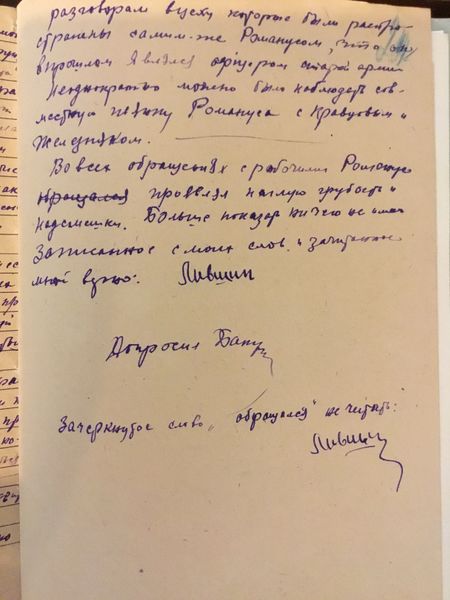 разговорам в цеху которые были распро-
странены самим-же Романусом, что он
в прошлом являлся офицером старой армии
Неоднократно можно было наблюдать сов-
местную пьянку Романуса с Кравцовым и
Желещиком.
Во всех обращениях с рабочими Романус
обращался проявлял наглую грубость и
надсмешки. Больше показать ничего не могу
Записанное с моих слов и зачитанно
мной верно: Лившин
Допросил
Зачеркнутое слово „обращался" не читать:
Лившин